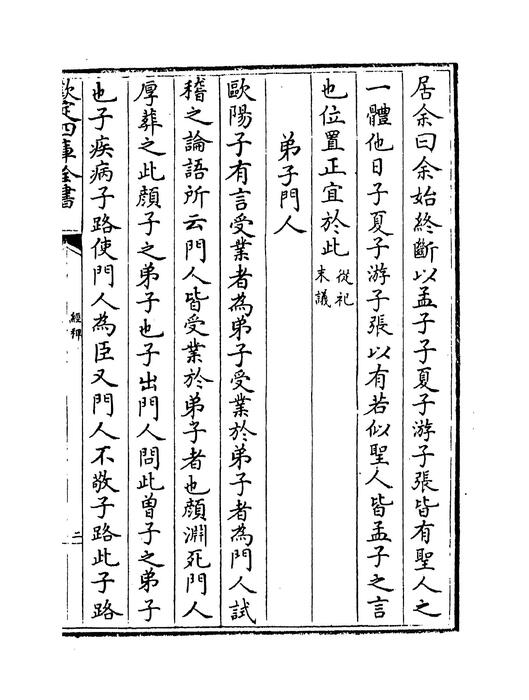 居余曰余始終斷以孟子子夏子游子張皆有聖人之
一體他日子夏子游子張以有若似聖人皆孟子之言
也位置正宜於此從祀
末議
弟子門人
歐陽子有言受業者為弟子受業於弟子者為門人試
稽之論語所云門人皆受業於弟子者也顏淵死門人
厚葬之此顏子之弟子也子出門人問此曾子之弟子
也子疾病子路使門人為臣又門人不敬子路此子路
欽定四庫全書
經稗
二